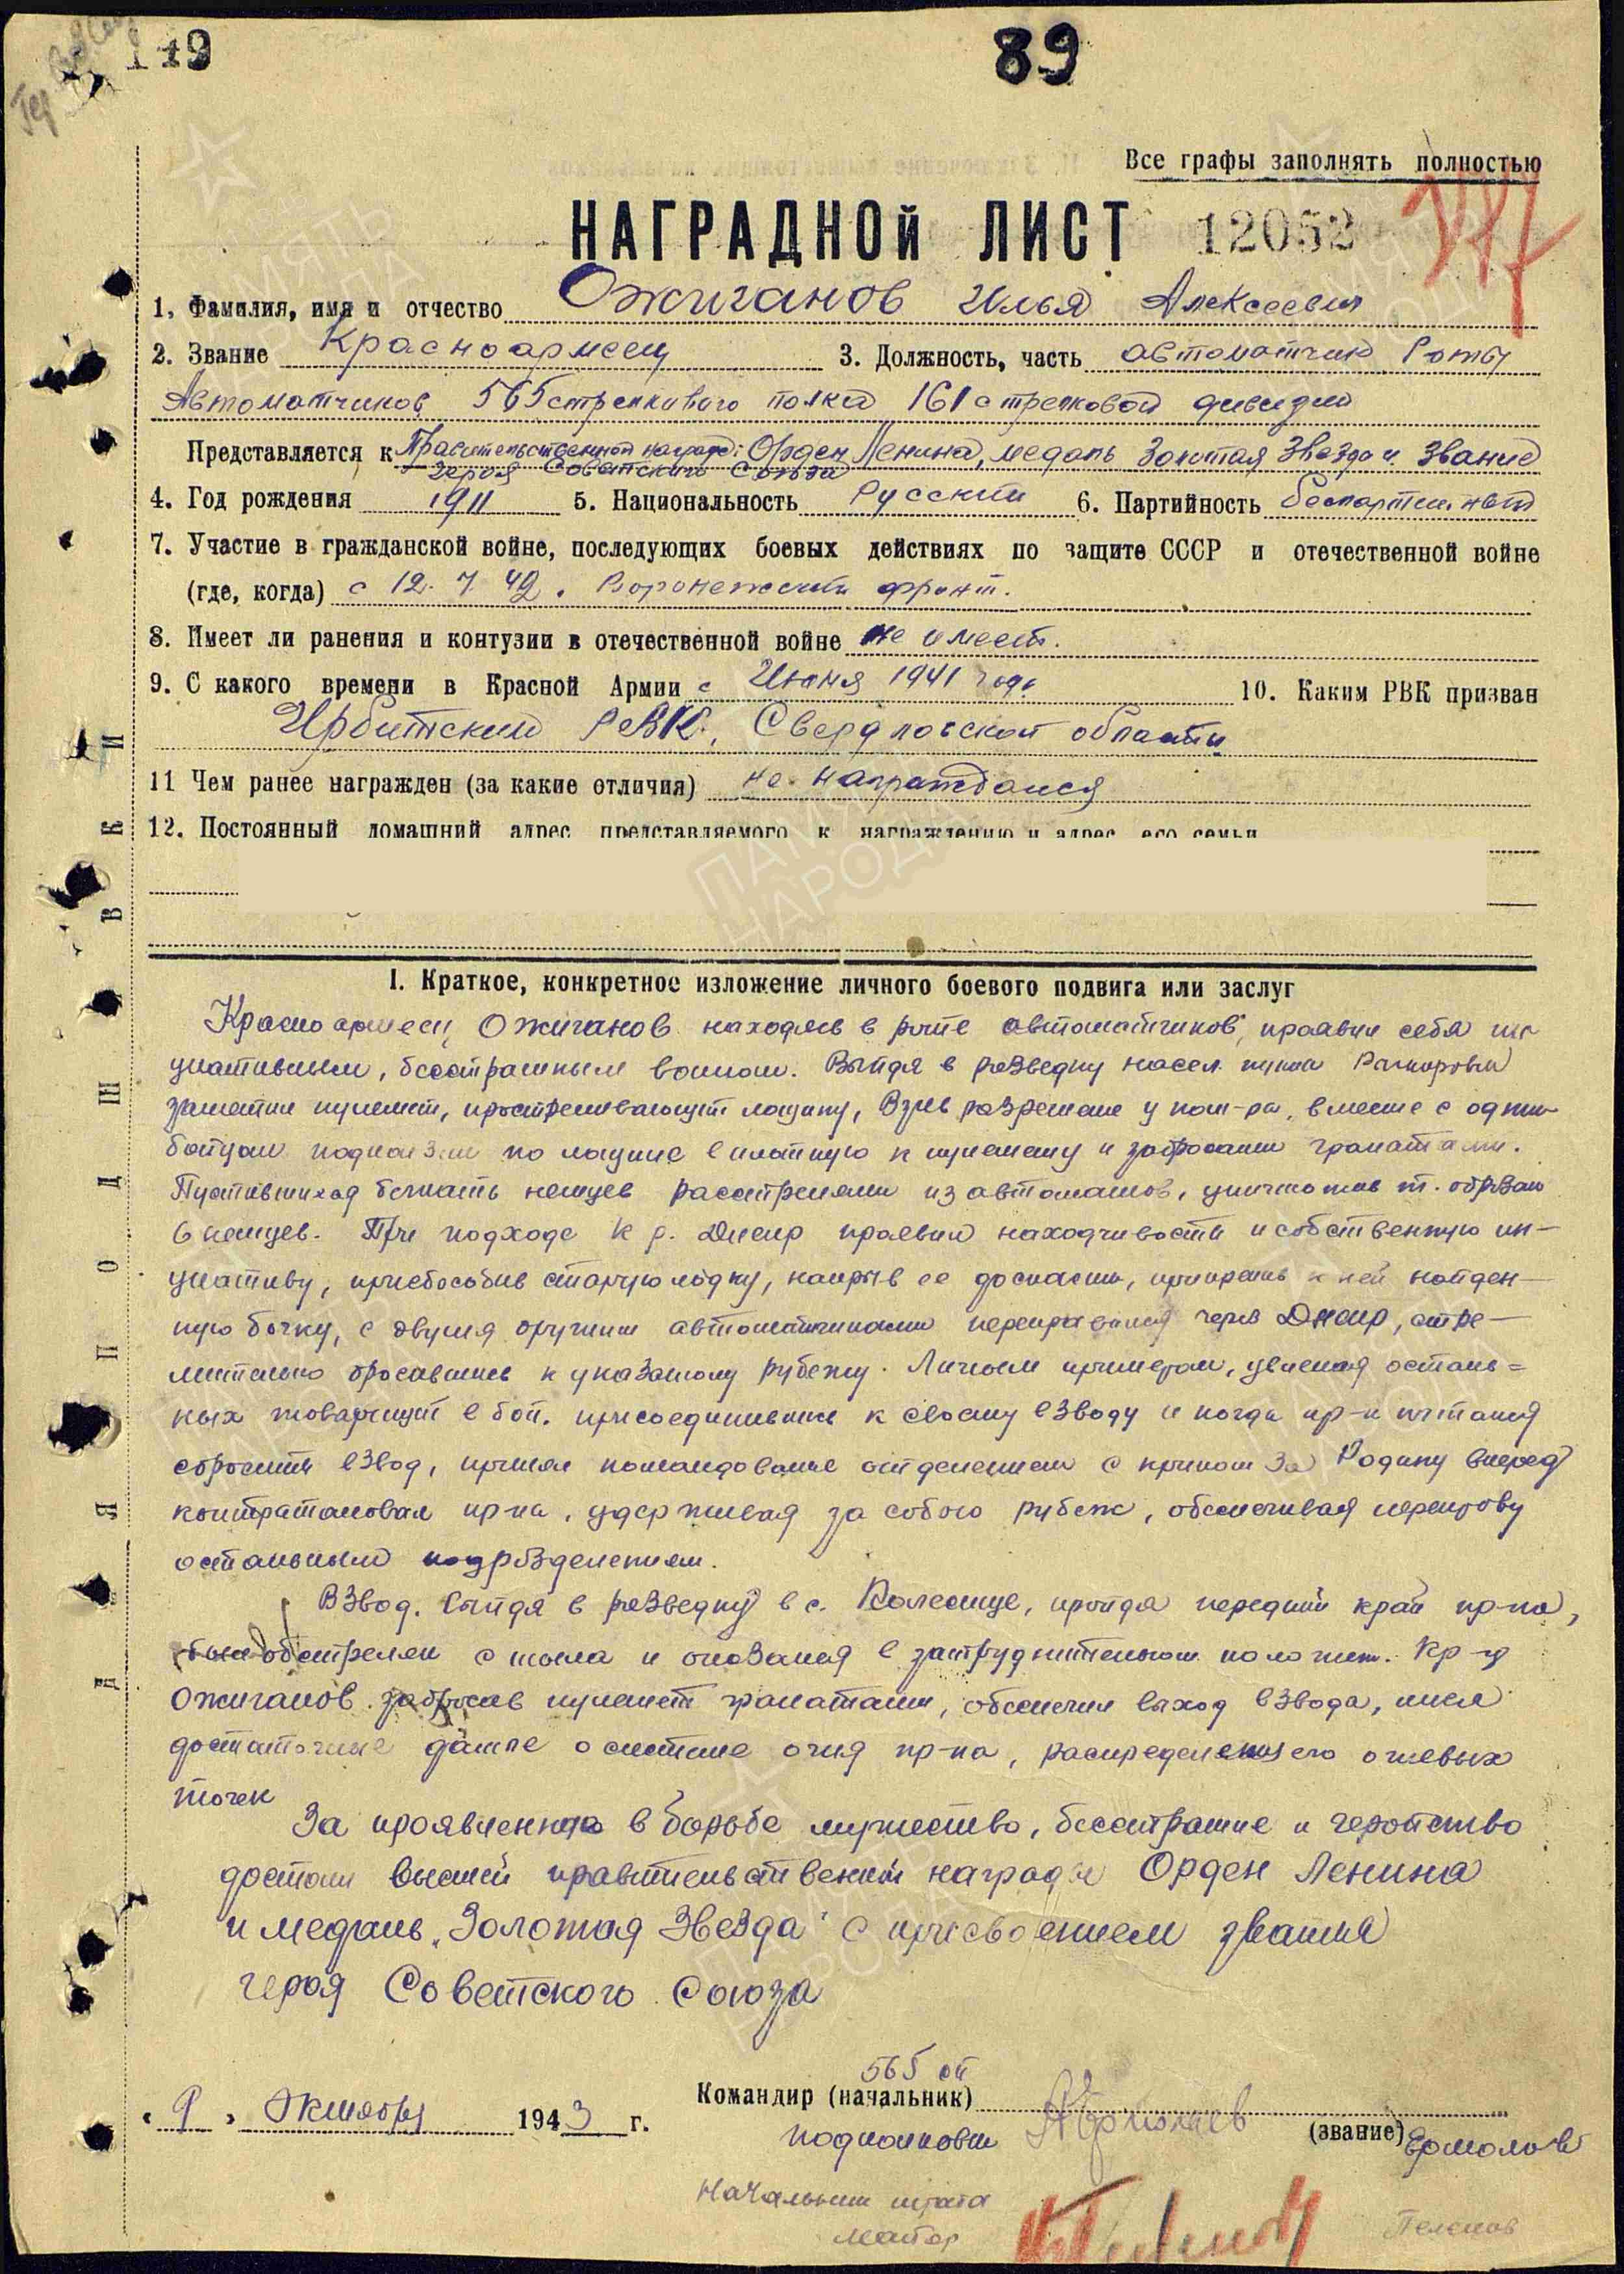 149
89
Все графы заполнять полностью
НАГРАДНОЙ ЛИСТ 12052
1, Фамилия, имя и отчество Ожиганов Илья Алексеевич
2. Звание Красноармеец 3. Должность, часть автоматчик Роты
Автоматчиков 565 стрелкового полка 161 стрелковой дивизии
Представляется к Правительственной награде: Орден Ленина, медаль Золотая Звезда и Звание
Героя Советского Союза
4. Год рождения 1911 5. Национальность Русский 6. Партийность беспартийный
7. Участие в гражданской войне, последующих боевых действиях по защите СССР и отечественной войне
(где, когда) с 12.7.42. Воронежский фронт.
8. Имеет ли ранения и контузии в отечественной войне не имеет.
9. С какого времени в Красной Армии с Июня 1941 года 10. Каким РВК призван
Ирбитский РВК, Свердловской области
11 Чем ранее награжден (за какие отличия) не награждался
12. Постоянный домашний адрес представляемого к награждению и адрес его семьи
I. Краткое, конкретное изложение личного боевого подвига или заслуг
Красноармеец Ожиганов находясь в роте автоматчиков, проявил себя ини-
циативным, бесстрашным воином. Выйдя в разведку насел. пункта
заметил пулемет, простреливающий лощину, Взяв разрешение у ком-ра, вместе с одним
бойцом подползли по лощине вплотную к пулемету и забросали гранатами.
Пустившихся бежать немцев расстреляли из автоматов, уничтожив т. образом
6 немцев. При подходе к р. Днепр проявил находчивость и собственную ин-
циативу, приспособив старую лодку, накрыв ее досками, прикрепив к ней найден-
ную бочку, с двумя другими автоматчиками переправился через Днепр, стре-
мительно бросившись к указанному рубежу. Личным примером, увлекая осталь=
ных товарищей в бой. присоединившись к своему взводу и когда пр-к пытался
сбросить взвод, принял командование отделением с криком За Родину вперед
контратаковал пр-ка, удерживая за собою рубеж, обеспечивая переправу
остальным подразделениям.
Взвод. выйдя в разведку в с. Колесище, пройдя передний край пр-ка,
был обстрелян с тыла и оказался в затруднительном положен. Кр-ц
Ожиганов забросав пулемет гранатами, обеспечил выход взвода, имея
достаточные данные о системе огня пр-ка, распределения его огневых
точек
За проявленное в борьбе мужество, бесстрашие и геройство
достоин высшей правительственной награды Орден Ленина
и медаль „Золотая Звезда" с присвоением звания
героя Советского Союза
565 сп
„9" Октября 1943 г. Командир (начальник)
подполковник (звание) Ермолаев
Начальник штаба
майор
ПАМЯТЬ НАРОДА
ДЛЯ ПОДШИВКИ